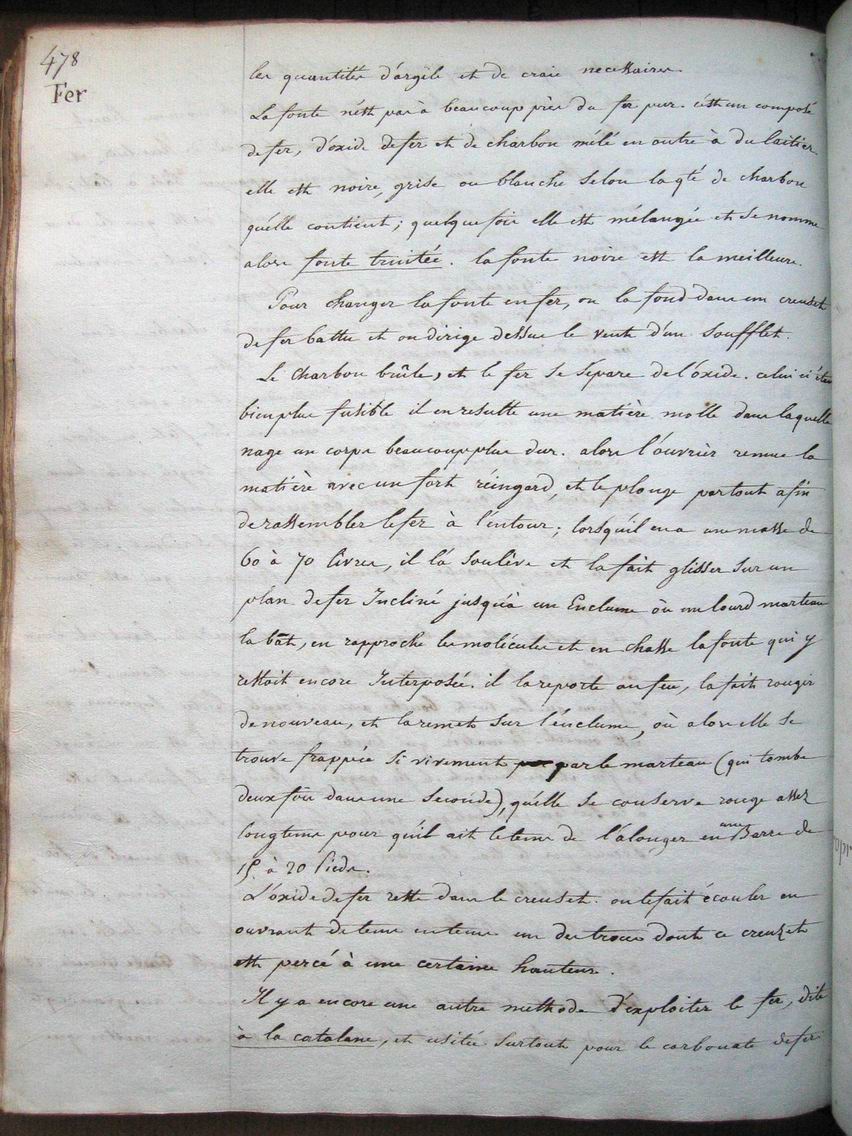 478
Fer
les quantités d'argile et de craie necessaires.
La fonte n'est pas à beaucoup près du fer pur. c'est un composé
de fer, d'oxide de fer et de charbon mêlé en outre à du laitier
elle est noire, grise ou blanche selon la qté de charbon
qu'elle contient; quelque fois elle est mélangée et se nomme
alors fonte truitée. la fonte noire est la meilleure.
Pour changer la fonte en fer, on la fond dans un creuset
de fer battu et on dirige dessus le vent d'un soufflet.
Le charbon brûle, et le fer se sépare de l'oxide. celui ci étant
bien plus fusible il en resulte une matière molle dans laquelle
nage un corps beaucoup plus dur. alors l'ouvrier remue la
matière avec un fort réingard, et le plonge partout afin
de rassembler le fer à l'entour; lorsqu'il en a une masse de
60 à 70 livres, il la soulève et la fait glisser sur un
plan de fer Incliné jusqu'à un Enclume où un lourd marteau
la bât, en rapproche les molécules et en chasse la fonte qui y
restait encore Interposée. il la reporte au feu, la fait rougir
de nouveau, et la remets sur l'enclume, où alors elle se
trouve frappée si vivement par le marteau (qui tombe
deux fois dans une seconde), qu'elle se conserve rouge assez
longtems pour qu'il ait le tems de l'alonger en une Barre de
15 à 20 Pieds.
L'oxide de fer reste dans le creuset. on le fait écouler en
ouvrant de tems en tems un des trous dont ce creuset
est percé à une certaine hauteur.
Il y a encore une autre méthode d'exploiter le fer, dite
à la catalane, et usitée surtout pour le carbonate de fer